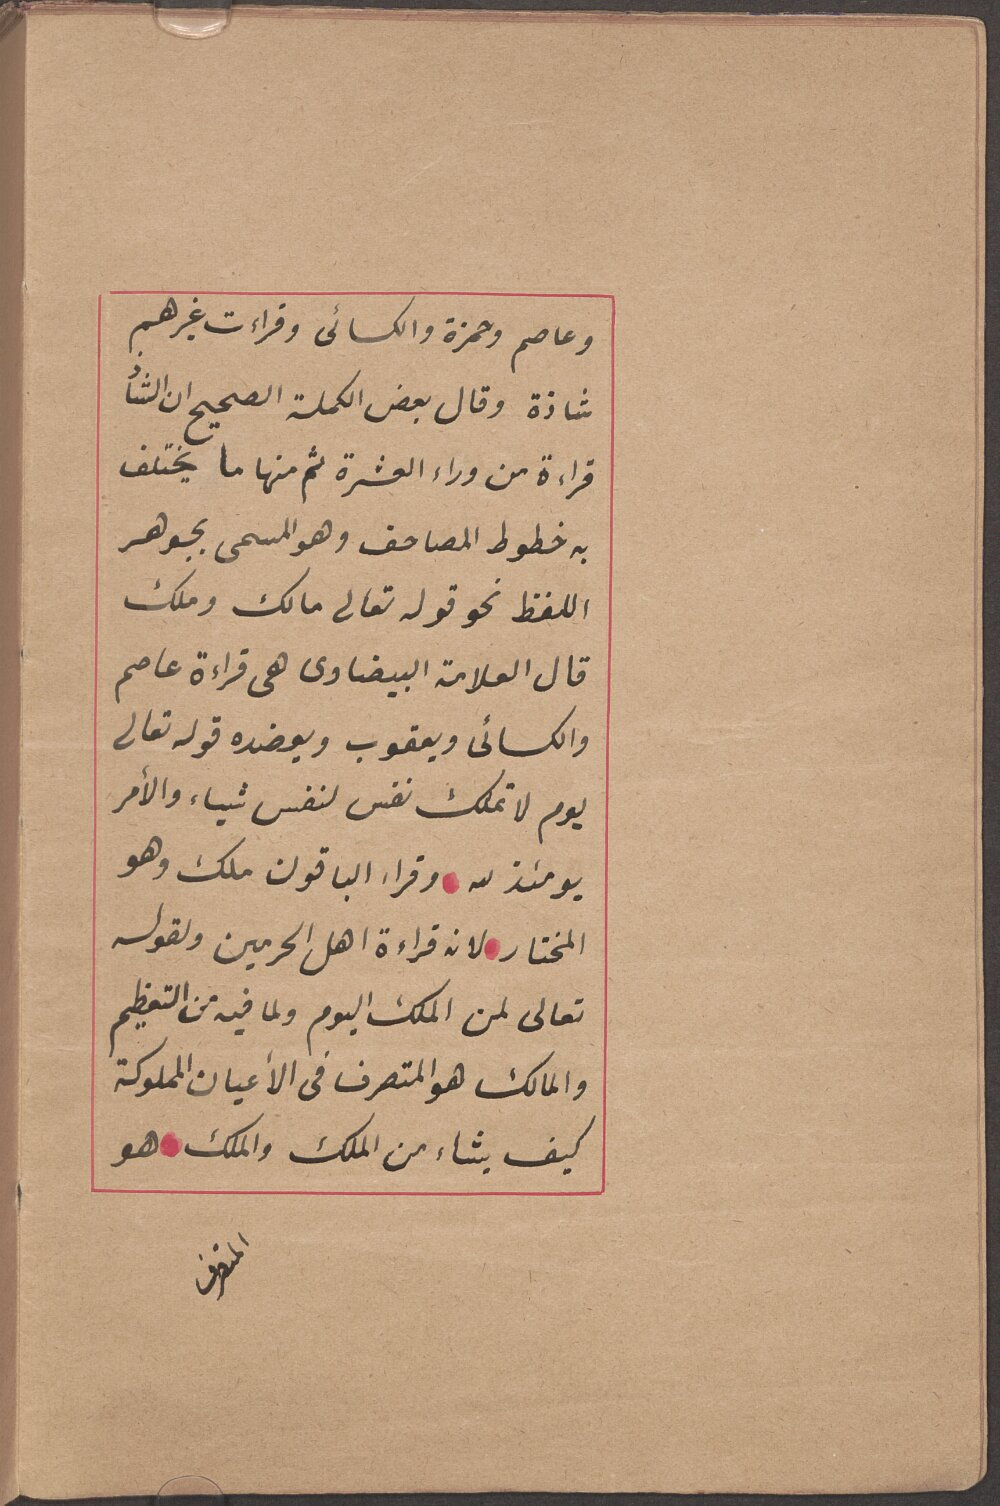 وعاصم وحمزة والكسائى وقراءت غيرهم
شاذة وقال بعض الكملة الصحيح ان الشاذ
قراءة من وراء العشرة ثم منها ما يختلف
به خطوط المصاحف وهو المسمى بجوهر
اللفظ نحو قوله تعالى مالك وملك
قال العلامة البيضاوى هى قراءة عاصم
والكسائى ويعقوب ويعضده قوله تعالى
يوم لا تملك نفس لنفس شياء والأمر
يومئذ لله وقراء الباقون ملك وهو
المختار لانه قراءة اهل الحرمين ولقوله
تعالى لمن الملك اليوم ولما فيه من التعظيم
والمالك هو المتصرف فى الأعيان المملوكة
كيف يشاء من الملك والملك هو
المتصرف